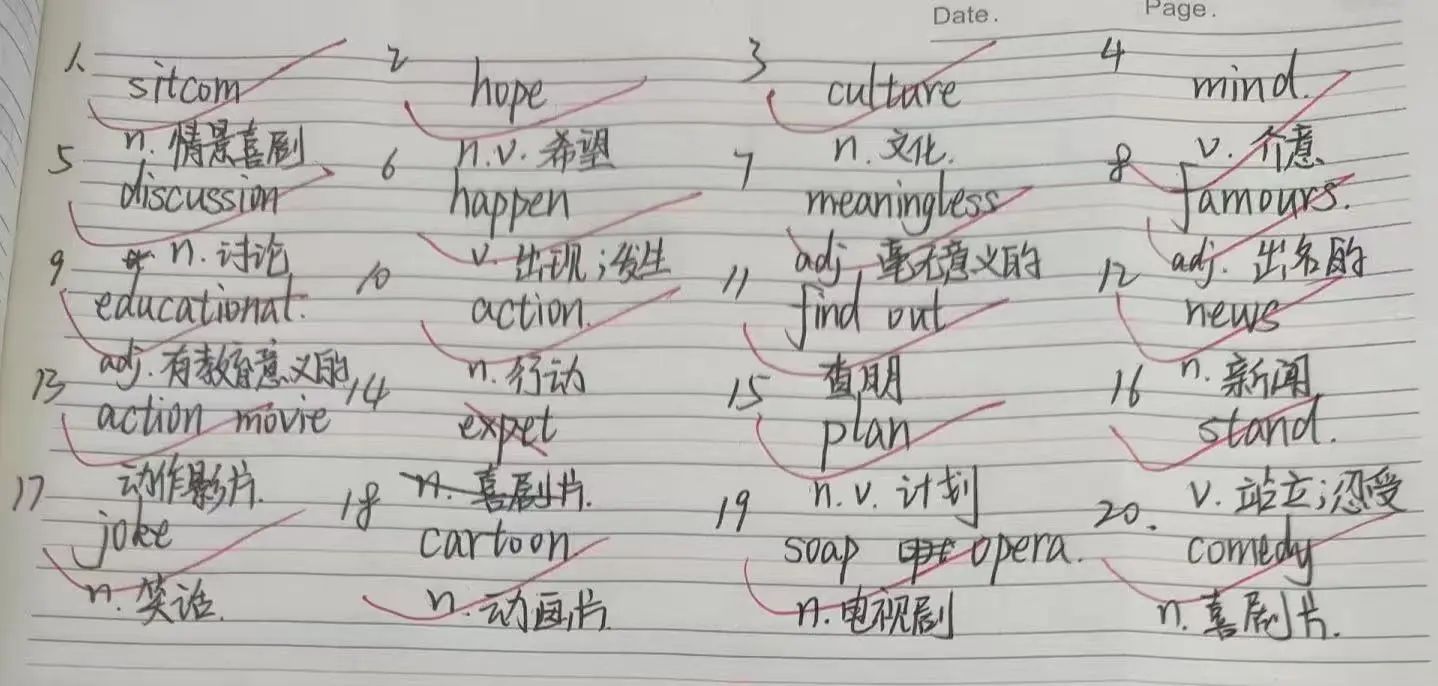 Date. Page.
1. sitcom 2 hope 3 culture 4 mind.
n. 情景喜剧 n.v. 希望 n. 文化. v. 介意
5 discussion 6 happen 7 meaningless 8 famours.
n. 讨论 v. 出现;发生 adj. 毫无意义的 adj. 出名的
9 educational. 10 action. 11 find out 12 news
adj. 有教育意义的 n. 行动 查明 n. 新闻
13 action movie 14 expet 15 plan 16 stand.
动作影片. n. 喜剧片. n.v. 计划 v. 站立;忍受
17 joke 18 cartoon 19 soap opera. 20. comedy
n. 笑话. n. 动画片 n. 电视剧 n. 喜剧片.